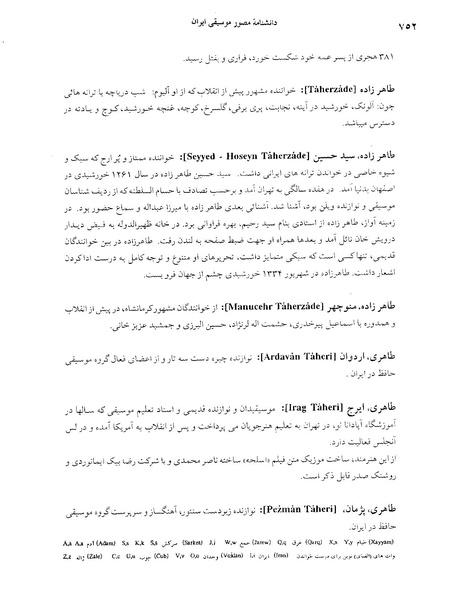 ۷۵۲
دانشنامهٔ مصور موسیقی ایران
۳۸۱ هجری از پسر عمه خود شکست خورد، فراری و بقتل رسید.
طاهر زاده [Tāherzāde]: خواننده مشهور پیش از انقلاب که از او آلبوم: شب دریاچه با ترانه هائی
چون: آلونک، خورشید در آینه، نجابت، پری برفی، گلسرخ، کوچه، غنچه خورشید، کوچ و یادته در
دسترس میباشد.
طاهر زاده، سید حسین [Seyyed - Hoseyn Tāherzāde]: خواننده ممتاز و پُر ارج که سبک و
شیوه خاصی در خواندن ترانه های ایرانی داشت. سید حسین طاهر زاده در سال ۱۲۶۱ خورشیدی در
اصفهان بدنیا آمد. در هفده سالگی به تهران آمد و برحسب تصادف با حسام السلطنه که از ردیف شناسان
موسیقی و نوازنده ویلن بود، آشنا شد. آشنائی بعدی طاهر زاده با میرزا عبداله و سماع حضور بود. در
زمینه آواز، طاهر زاده از استادی بنام سید رحیم، بهره فراوانی برد. در خانه ظهیرالدوله به فیض دیدار
درویش خان نائل آمد و بعدها همراه او جهت ضبط صفحه به لندن رفت. طاهرزاده در بین خوانندگان
قدیمی، تنها کسی است که سبکی متمایز داشت، تحریرهای او متنوع و توجه کامل به درست ادا کردن
اشعار داشت. طاهرزاده در شهریور ۱۳۳۴ خورشیدی چشم از جهان فرو بست.
طاهر زاده، منوچهر [Manucehr Tāherzāde]: از خوانندگان مشهور کرمانشاه، در پیش از انقلاب
و همدوره با اسماعیل پیرخدری، حشمت اله لرنژاد، حسین البرزی و جمشید عزیز خانی.
طاهری، اردوان [Ardavān Tāheri]: نوازنده چیره دست سه تار و از اعضای فعال گروه موسیقی
حافظ در ایران.
طاهری، ایرج [Irag Tāheri]: موسیقیدان و نوازنده قدیمی و استاد تعلیم موسیقی که سالها در
آموزشگاه آپادانا نو، در تهران به تعلیم هنرجویان می پرداخت و پس از انقلاب به آمریکا آمده و در لس
آنجلس فعالیت دارد.
از این هنرمند، ساخت موزیک متن فیلم «اسلحه» ساخته ناصر محمدی و با شرکت رضا بیک ایمانوردی و
روشنک صدر قابل ذکر است.
طاهری، پژمان، [Pežmān Tāheri]: نوازنده زبردست سنتور، آهنگساز و سرپرست گروه موسیقی
حافظ در ایران.